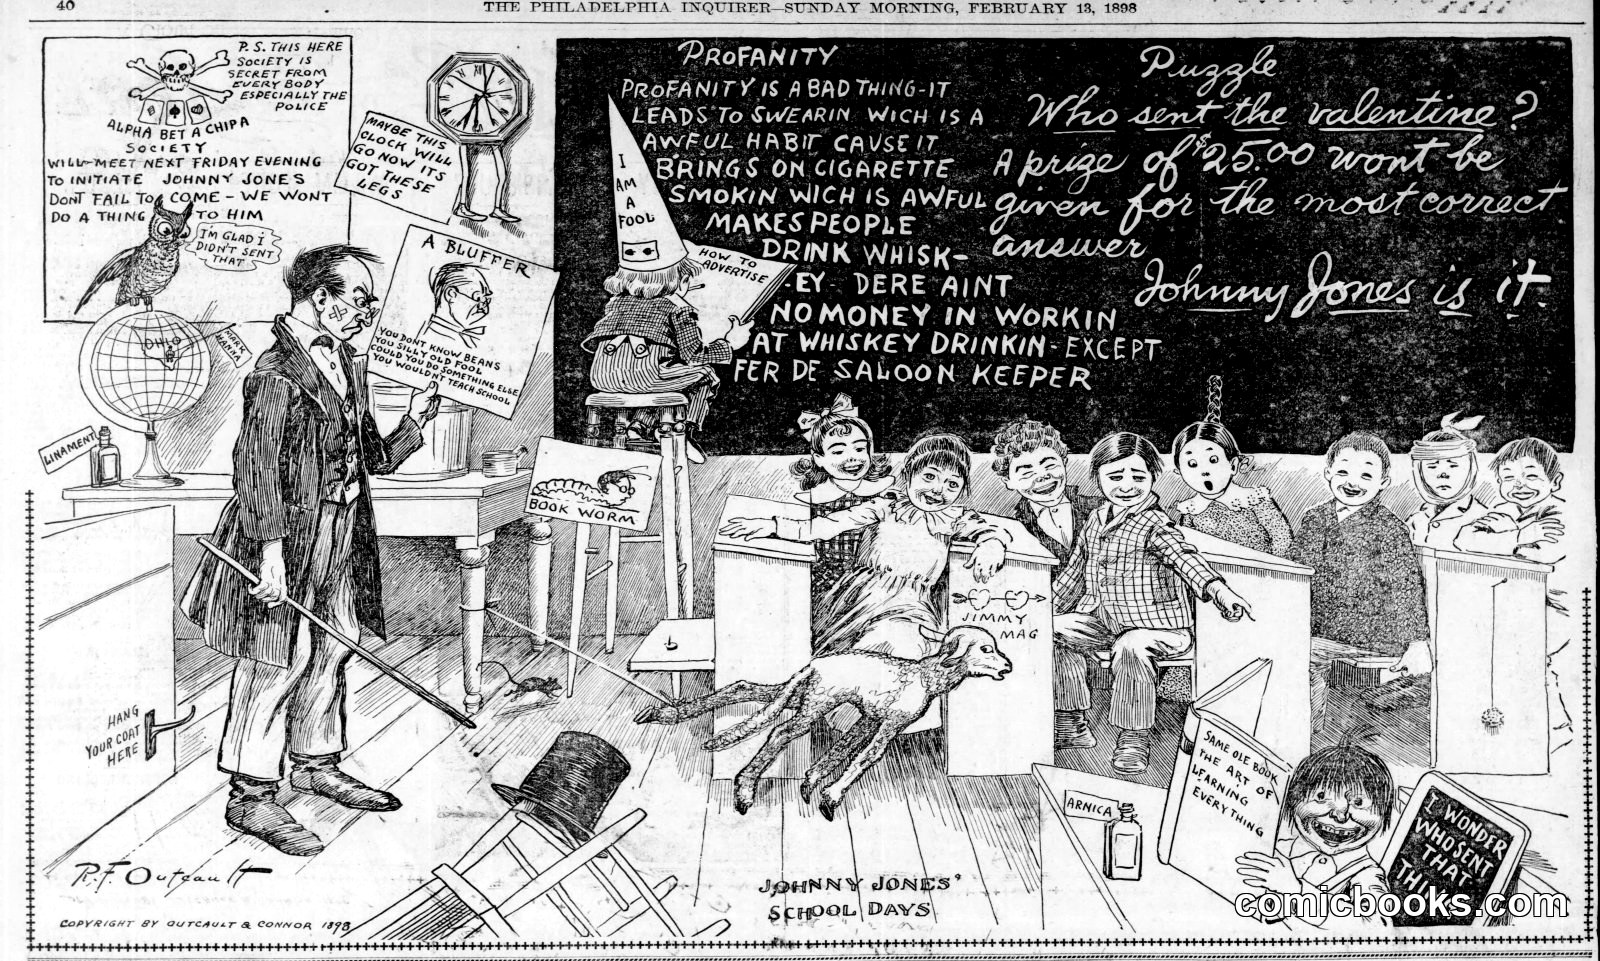 40
THE PHILADELPHIA INQUIRER—SUNDAY MORNING, FEBRUARY 13, 1898
P.S. THIS HERE
SOCIETY IS
SECRET FROM
EVERY BODY
ESPECIALLY THE
POLICE
ALPHA BET A CHIPA
SOCIETY
WILL MEET NEXT FRIDAY EVENING
TO INITIATE JOHNNY JONES
DONT FAIL TO COME - WE WONT
DO A THING TO HIM
I'M GLAD I
DIDN'T SENT
THAT
MAYBE THIS
CLOCK WILL
GO NOW ITS
GOT THESE
LEGS
A BLUFFER
YOU DONT KNOW BEANS
YOU SILLY OLD FOOL
COULD YOU DO SOMETHING ELSE
YOU WOULDN'T TEACH SCHOOL
OHIO
MARK
HANNA
LINAMENT
I
AM
A
FOOL
HOW TO
ADVERTISE
BOOK WORM
PROFANITY
PROFANITY IS A BAD THING-IT
LEADS TO SWEARIN WICH IS A
AWFUL HABIT CAUSE IT
BRINGS ON CIGARETTE
SMOKIN WICH IS AWFUL
MAKES PEOPLE
DRINK WHISK-
-EY- DERE AINT
NO MONEY IN WORKIN
AT WHISKEY DRINKIN-EXCEPT
FER DE SALOON KEEPER
Puzzle
Who sent the valentine?
A prize of $25.00 wont be
given for the most correct
answer
Johnny Jones is it.
JIMMY
MAG
HANG
YOUR COAT
HERE
ARNICA
SAME OLE BOOK
THE ART OF
LEARNING
EVERYTHING
I WONDER
WHO SENT
THAT
R.F. Outcault
COPYRIGHT BY OUTCAULT & CONNOR 1898
JOHNNY JONES'
SCHOOL DAYS
comicbooks.com